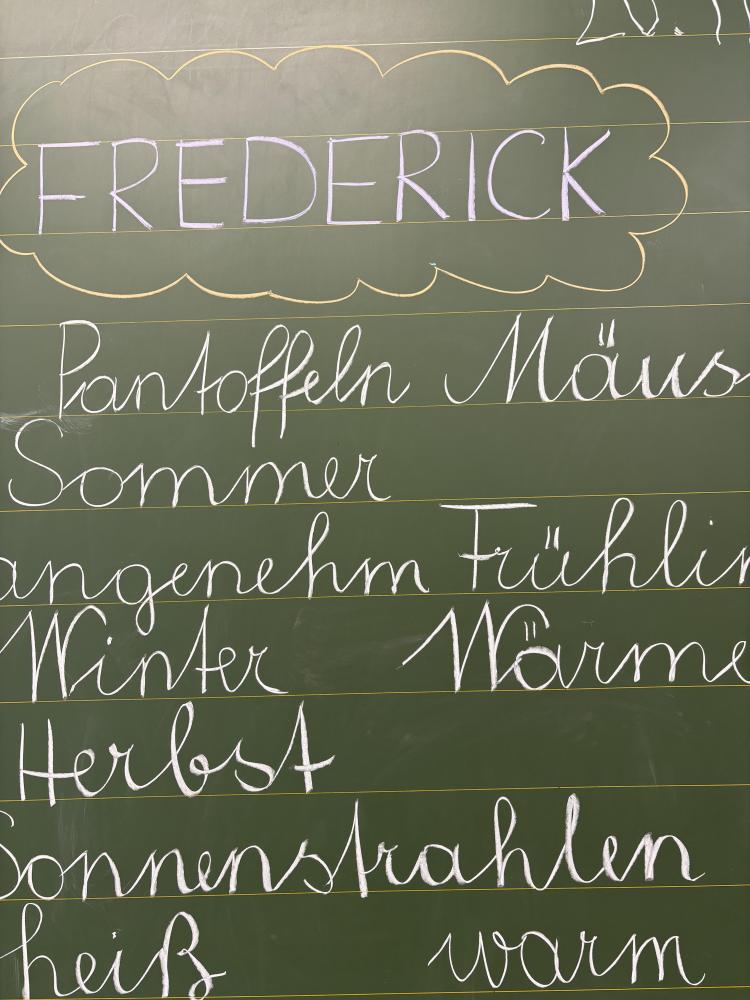 20.1
FREDERICK
Pantoffeln Mäus
Sommer
angenehm Frühlin
Winter Wärme
Herbst
Sonnenstrahlen
heiß warm